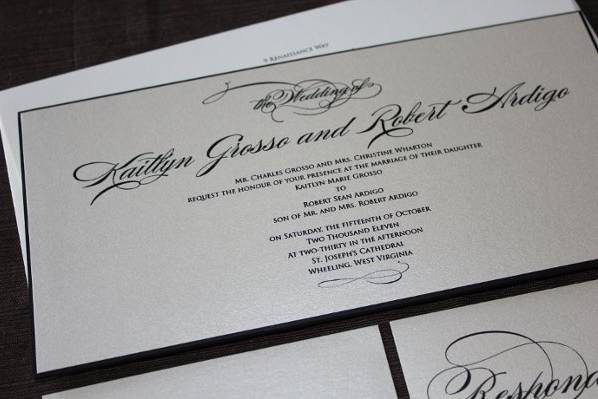 9 Renaissance Way
the Wedding of
Kaitlyn Grosso and Robert Ardigo
Mr. Charles Grosso and Mrs. Christine Wharton
request the honour of your presence at the marriage of their daughter
Kaitlyn Marie Grosso
to
Robert Sean Ardigo
son of Mr. and Mrs. Robert Ardigo
on Saturday, the fifteenth of October
Two Thousand Eleven
at two-thirty in the afternoon
St. Joseph's Cathedral
Wheeling, West Virginia
Respond